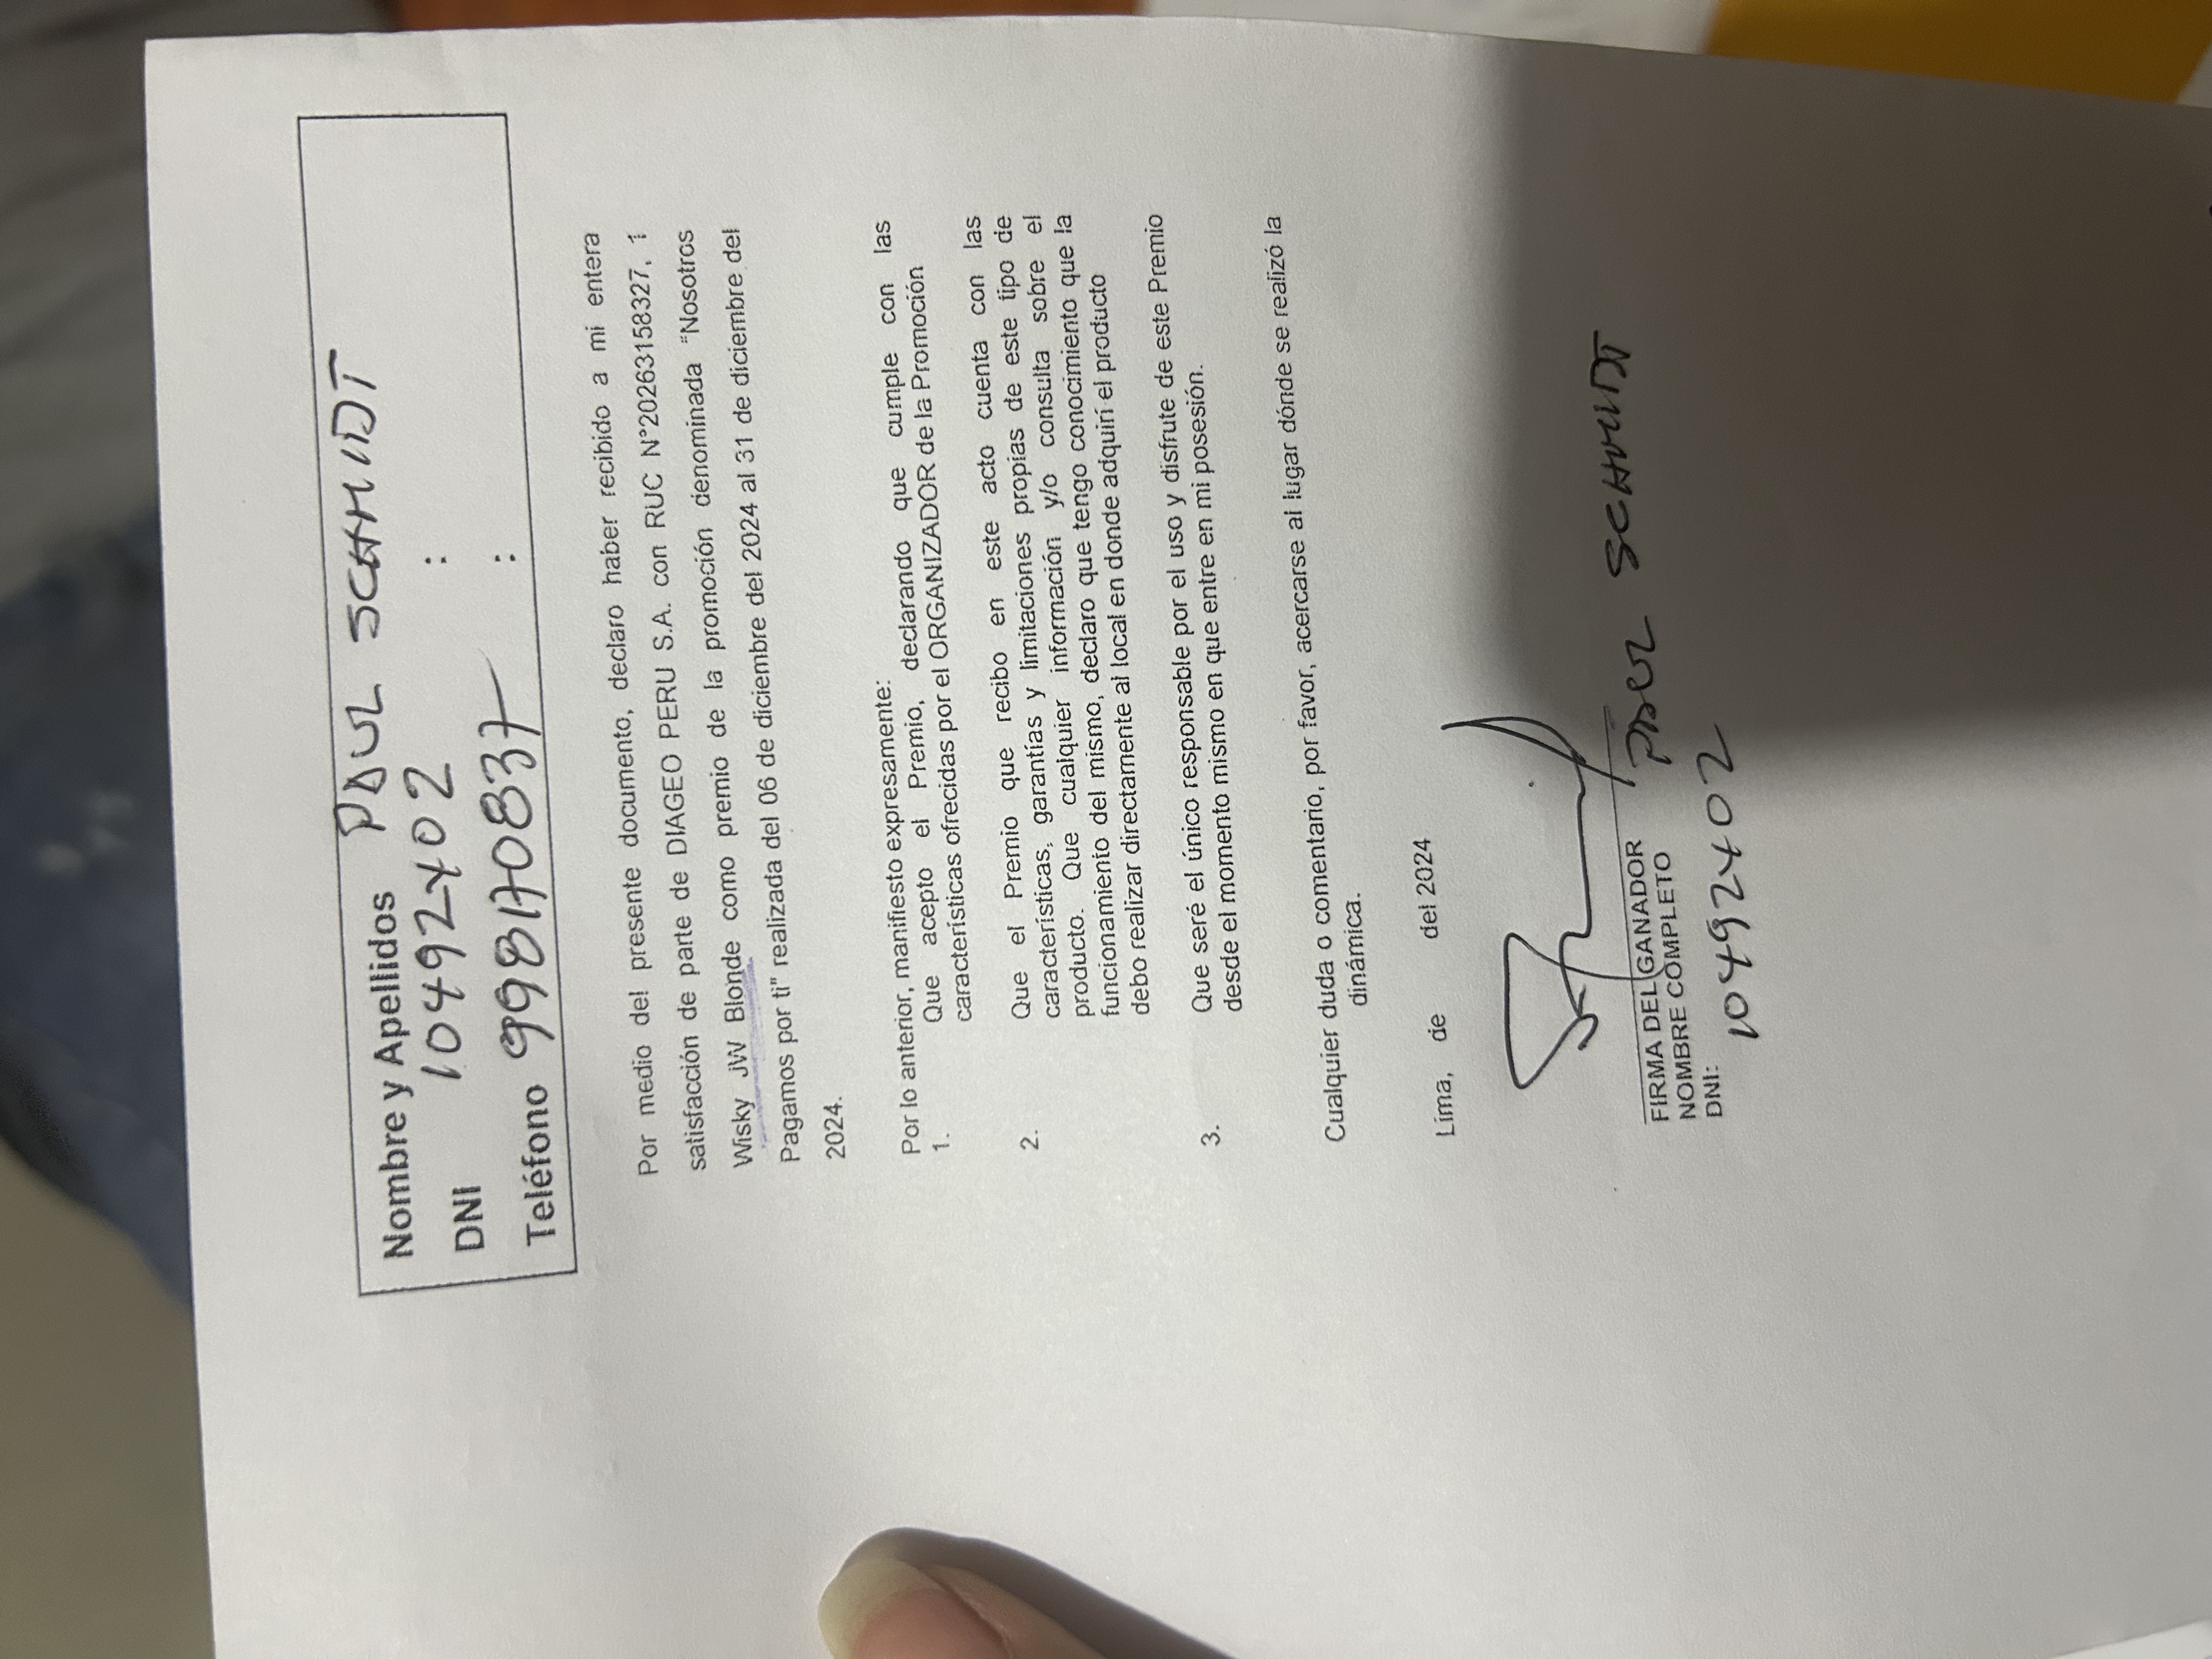 Nombre y Apellidos PAUL SCHMIDT
DNI 10492402 :
Teléfono 998170837 :
Por medio del presente documento, declaro haber recibido a mi entera
satisfacción de parte de DIAGEO PERU S.A. con RUC N°20263158327, 1
Wisky JW Blonde como premio de la promoción denominada "Nosotros
Pagamos por ti" realizada del 06 de diciembre del 2024 al 31 de diciembre del
2024.
Por lo anterior, manifiesto expresamente:
1. Que acepto el Premio, declarando que cumple con las
características ofrecidas por el ORGANIZADOR de la Promoción
2. Que el Premio que recibo en este acto cuenta con las
características, garantías y limitaciones propias de este tipo de
producto. Que cualquier información y/o consulta sobre el
funcionamiento del mismo, declaro que tengo conocimiento que la
debo realizar directamente al local en donde adquirí el producto
3. Que seré el único responsable por el uso y disfrute de este Premio
desde el momento mismo en que entre en mi posesión.
Cualquier duda o comentario, por favor, acercarse al lugar dónde se realizó la
dinámica.
Lima, de del 2024
FIRMA DEL GANADOR
NOMBRE COMPLETO PAUL SCHMIDT
DNI: 10492402